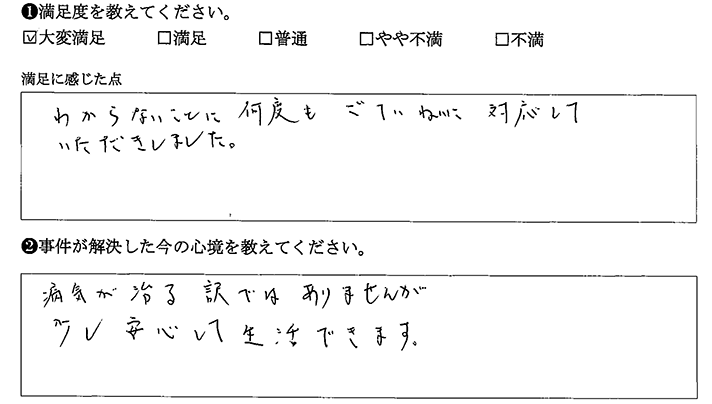 ❶満足度を教えてください。
☑大変満足 □満足 □普通 □やや不満 □不満
満足に感じた点
わからないことに何度もごていねいに対応して
いただきしました。
❷事件が解決した今の心境を教えてください。
病気が治る訳ではありませんが
少し安心して生活できます。